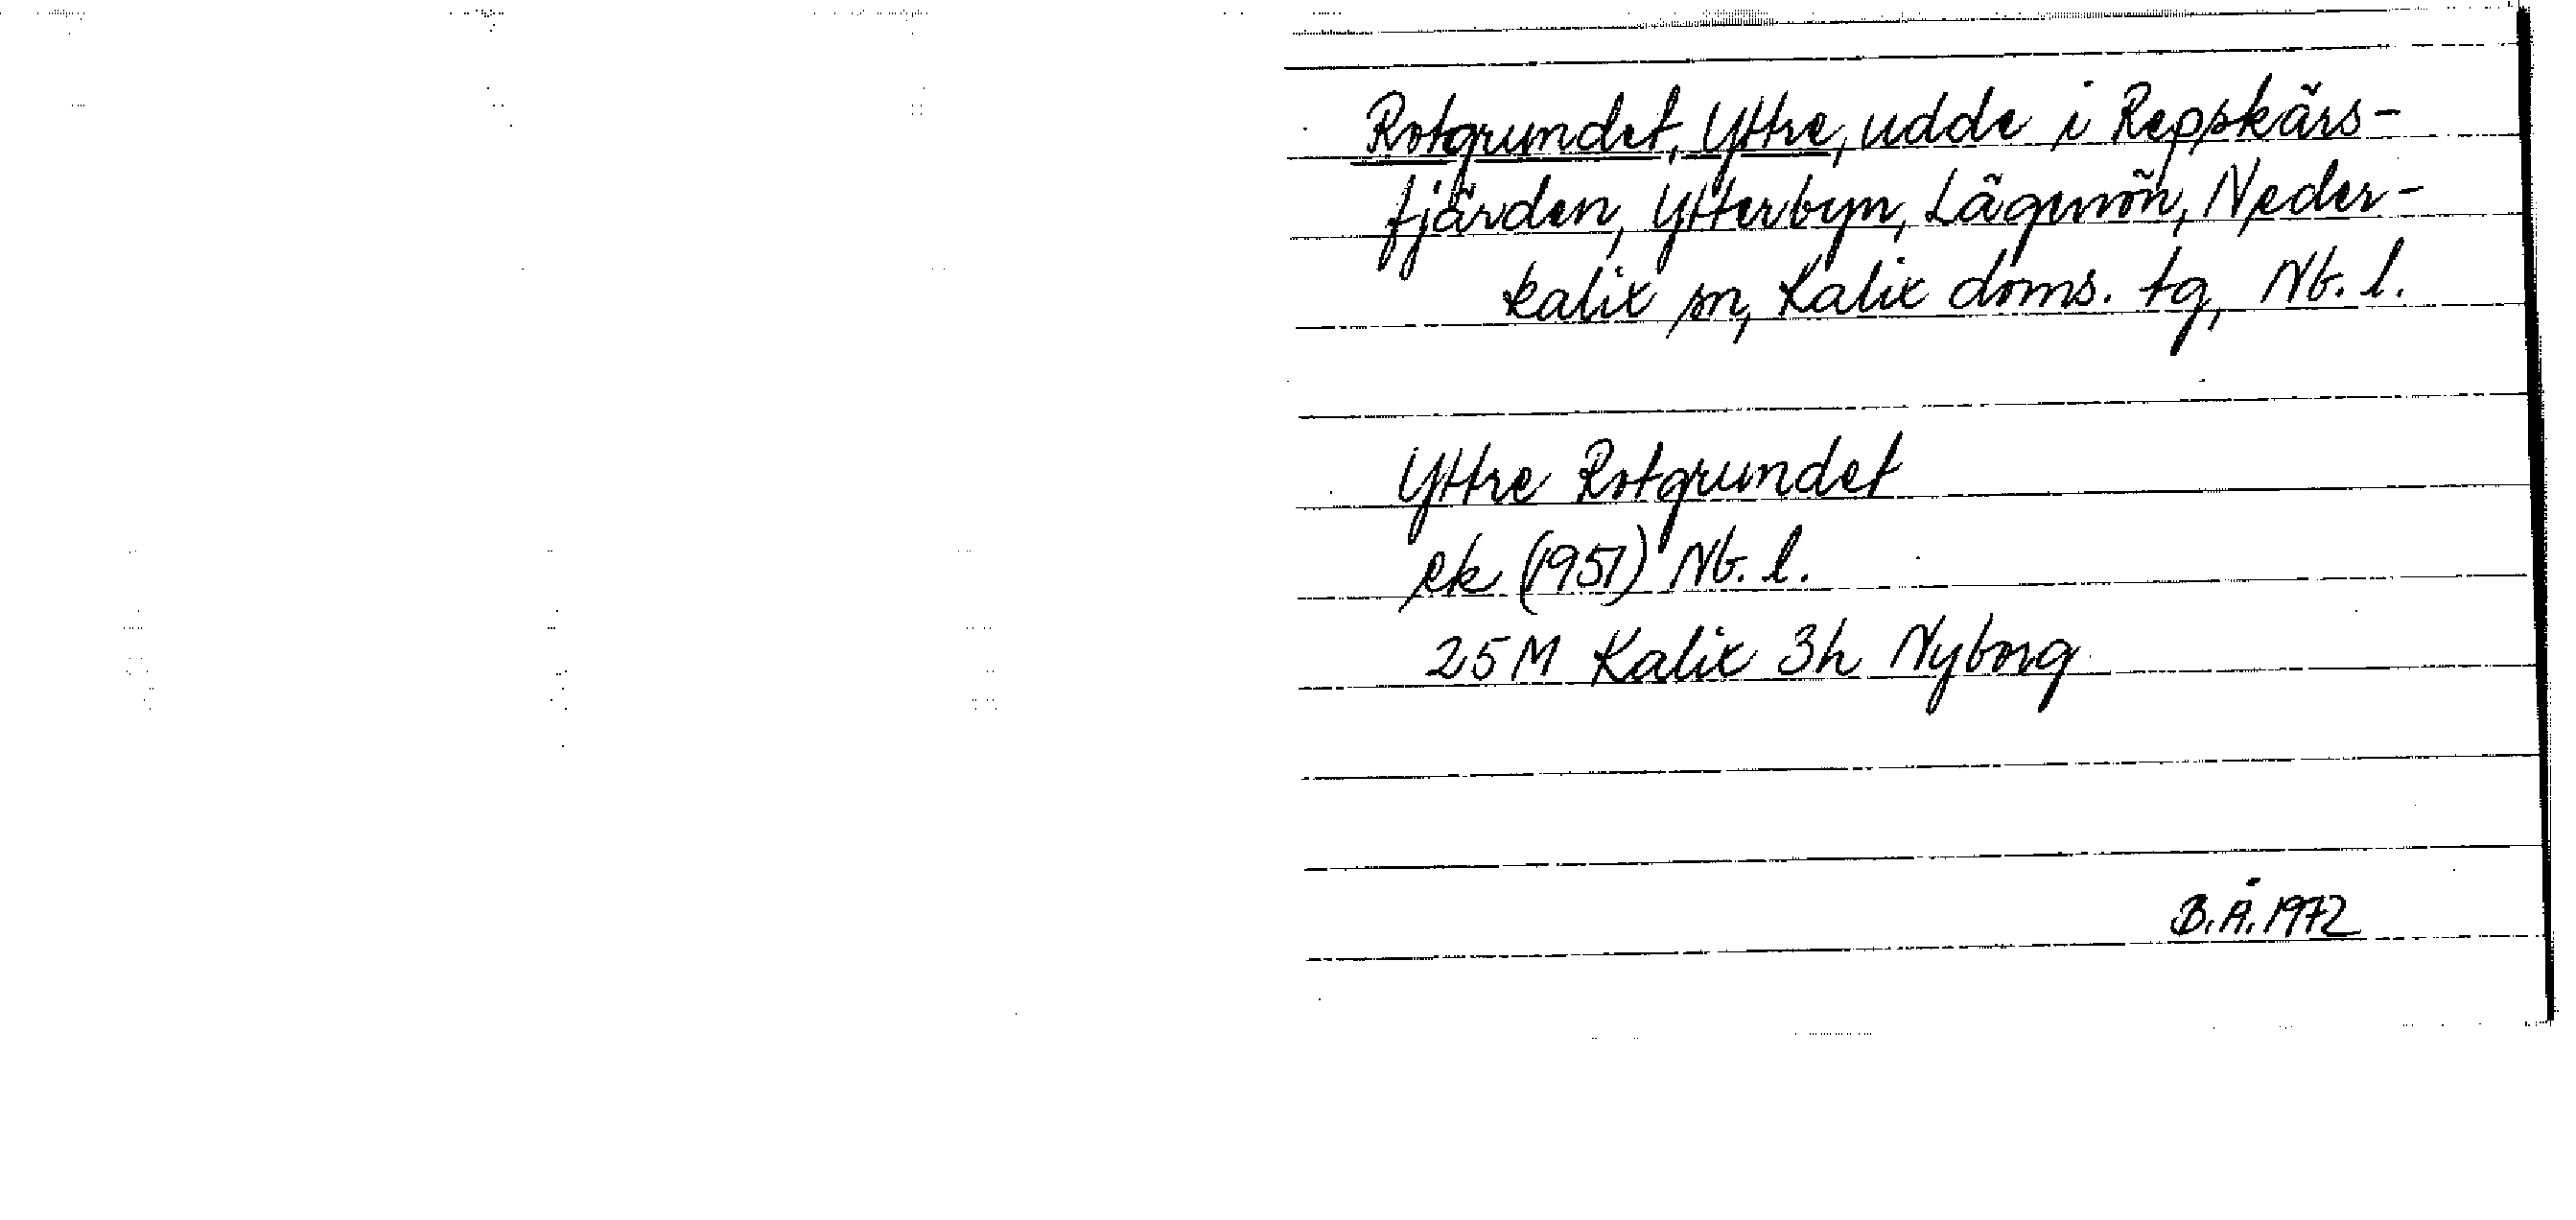 Rotgrundet, Yttre, udde i Repskärs-
fjärden, Ytterbyn, Lägmön, Neder-
kalix sn, Kalix doms. tg, Nb. l.
Yttre Rotgrundet
ek (1951) Nb. l.
25M Kalix 3h Nyborg
B.Å. 1972